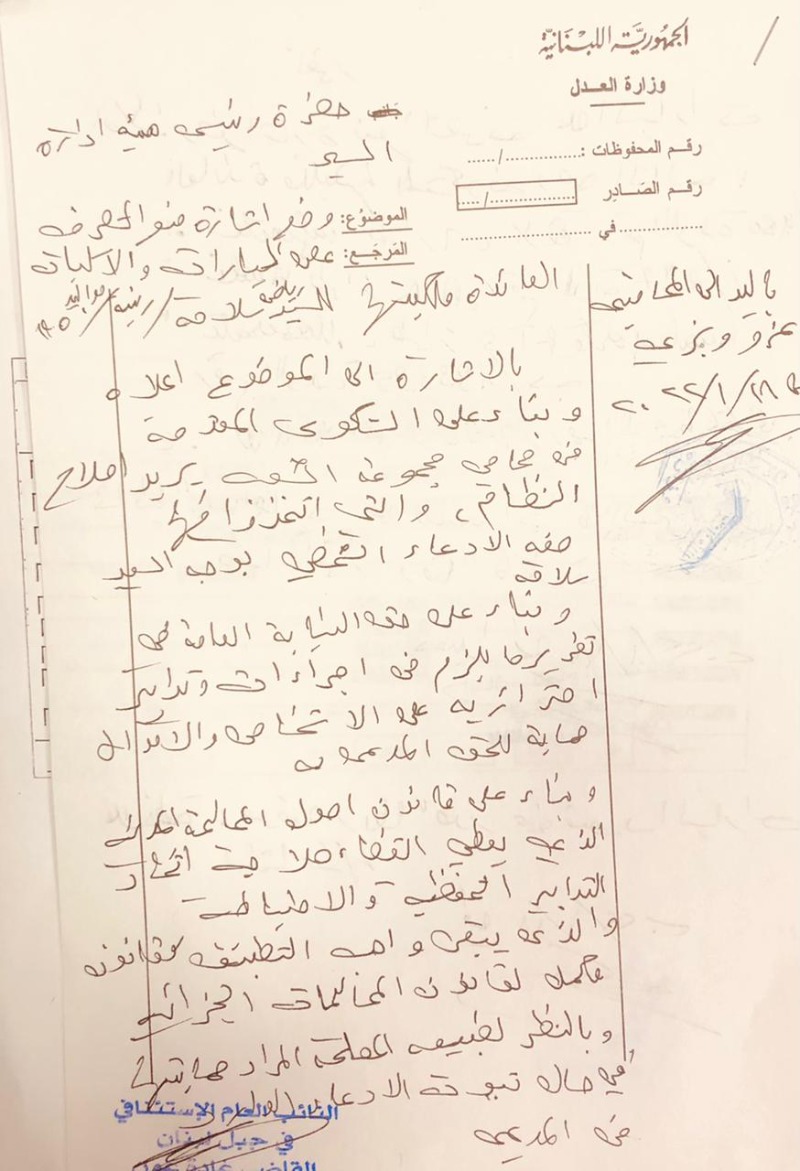 الجمهورية اللبنانية
وزارة العدل
حضرة رئيس هيئة ادارة
السير
رقم المحفوظات :............../......
رقم الصادر ................/.....
.................في ..........................
الموضوع: وضع اشارة منع التصرف
المرجع: على السيارات والآليات
العائدة ملكيتها للسيد رياض سلامة / رينيه / مواليد
باليد الى المحاميتين
عزو وبزي
في ٢٠٢٢/١/١٨
بالاشارة الى الموضوع اعلاه
وبناء على الشكوى المقدمة
من محامي مجموعة الشعب يريد اصلاح
النظام، والتي اتخذوا فيها
صفة الادعاء الشخصي بوجه السيد
سلامة
وبناء على حق النيابة العامة في
تقرير ما يلزم من اجراءات وتدابير
احترازية على الاشخاص والاموال
حماية للحق المدعى به
وبناء على قانون اصول المحاكمة المدنية
الذي يعطي القضاء صلاحية اتخاذ
التدابير التحفظية والاحتياطية
والذي يبقى واجب التطبيق كقانون
مكمل لقانون المحاكمات الجزائية
وبالنظر لطبيعة المصلحة المراد حمايتها
في حال ثبوت الادعاء
من المدعي
النائب العام الإستئنافي
في جبل لبنان
القاضي غادة عون